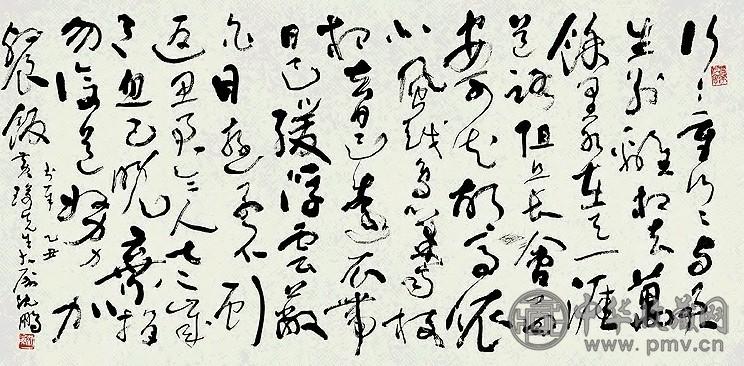 行〻重行〻与君
生别離相去萬
餘里各在天一涯
道路阻且長會面
安可知胡馬依
北風越鳥巢南枝
相去日已遠衣帶
日已緩浮雲蔽
白日遊子不顧
返思君令人老歲
月忽已晚棄捐
勿復道努力加
餐飯
乙丑
先生大属沈鹏
中华收藏网
www.pmv.cn